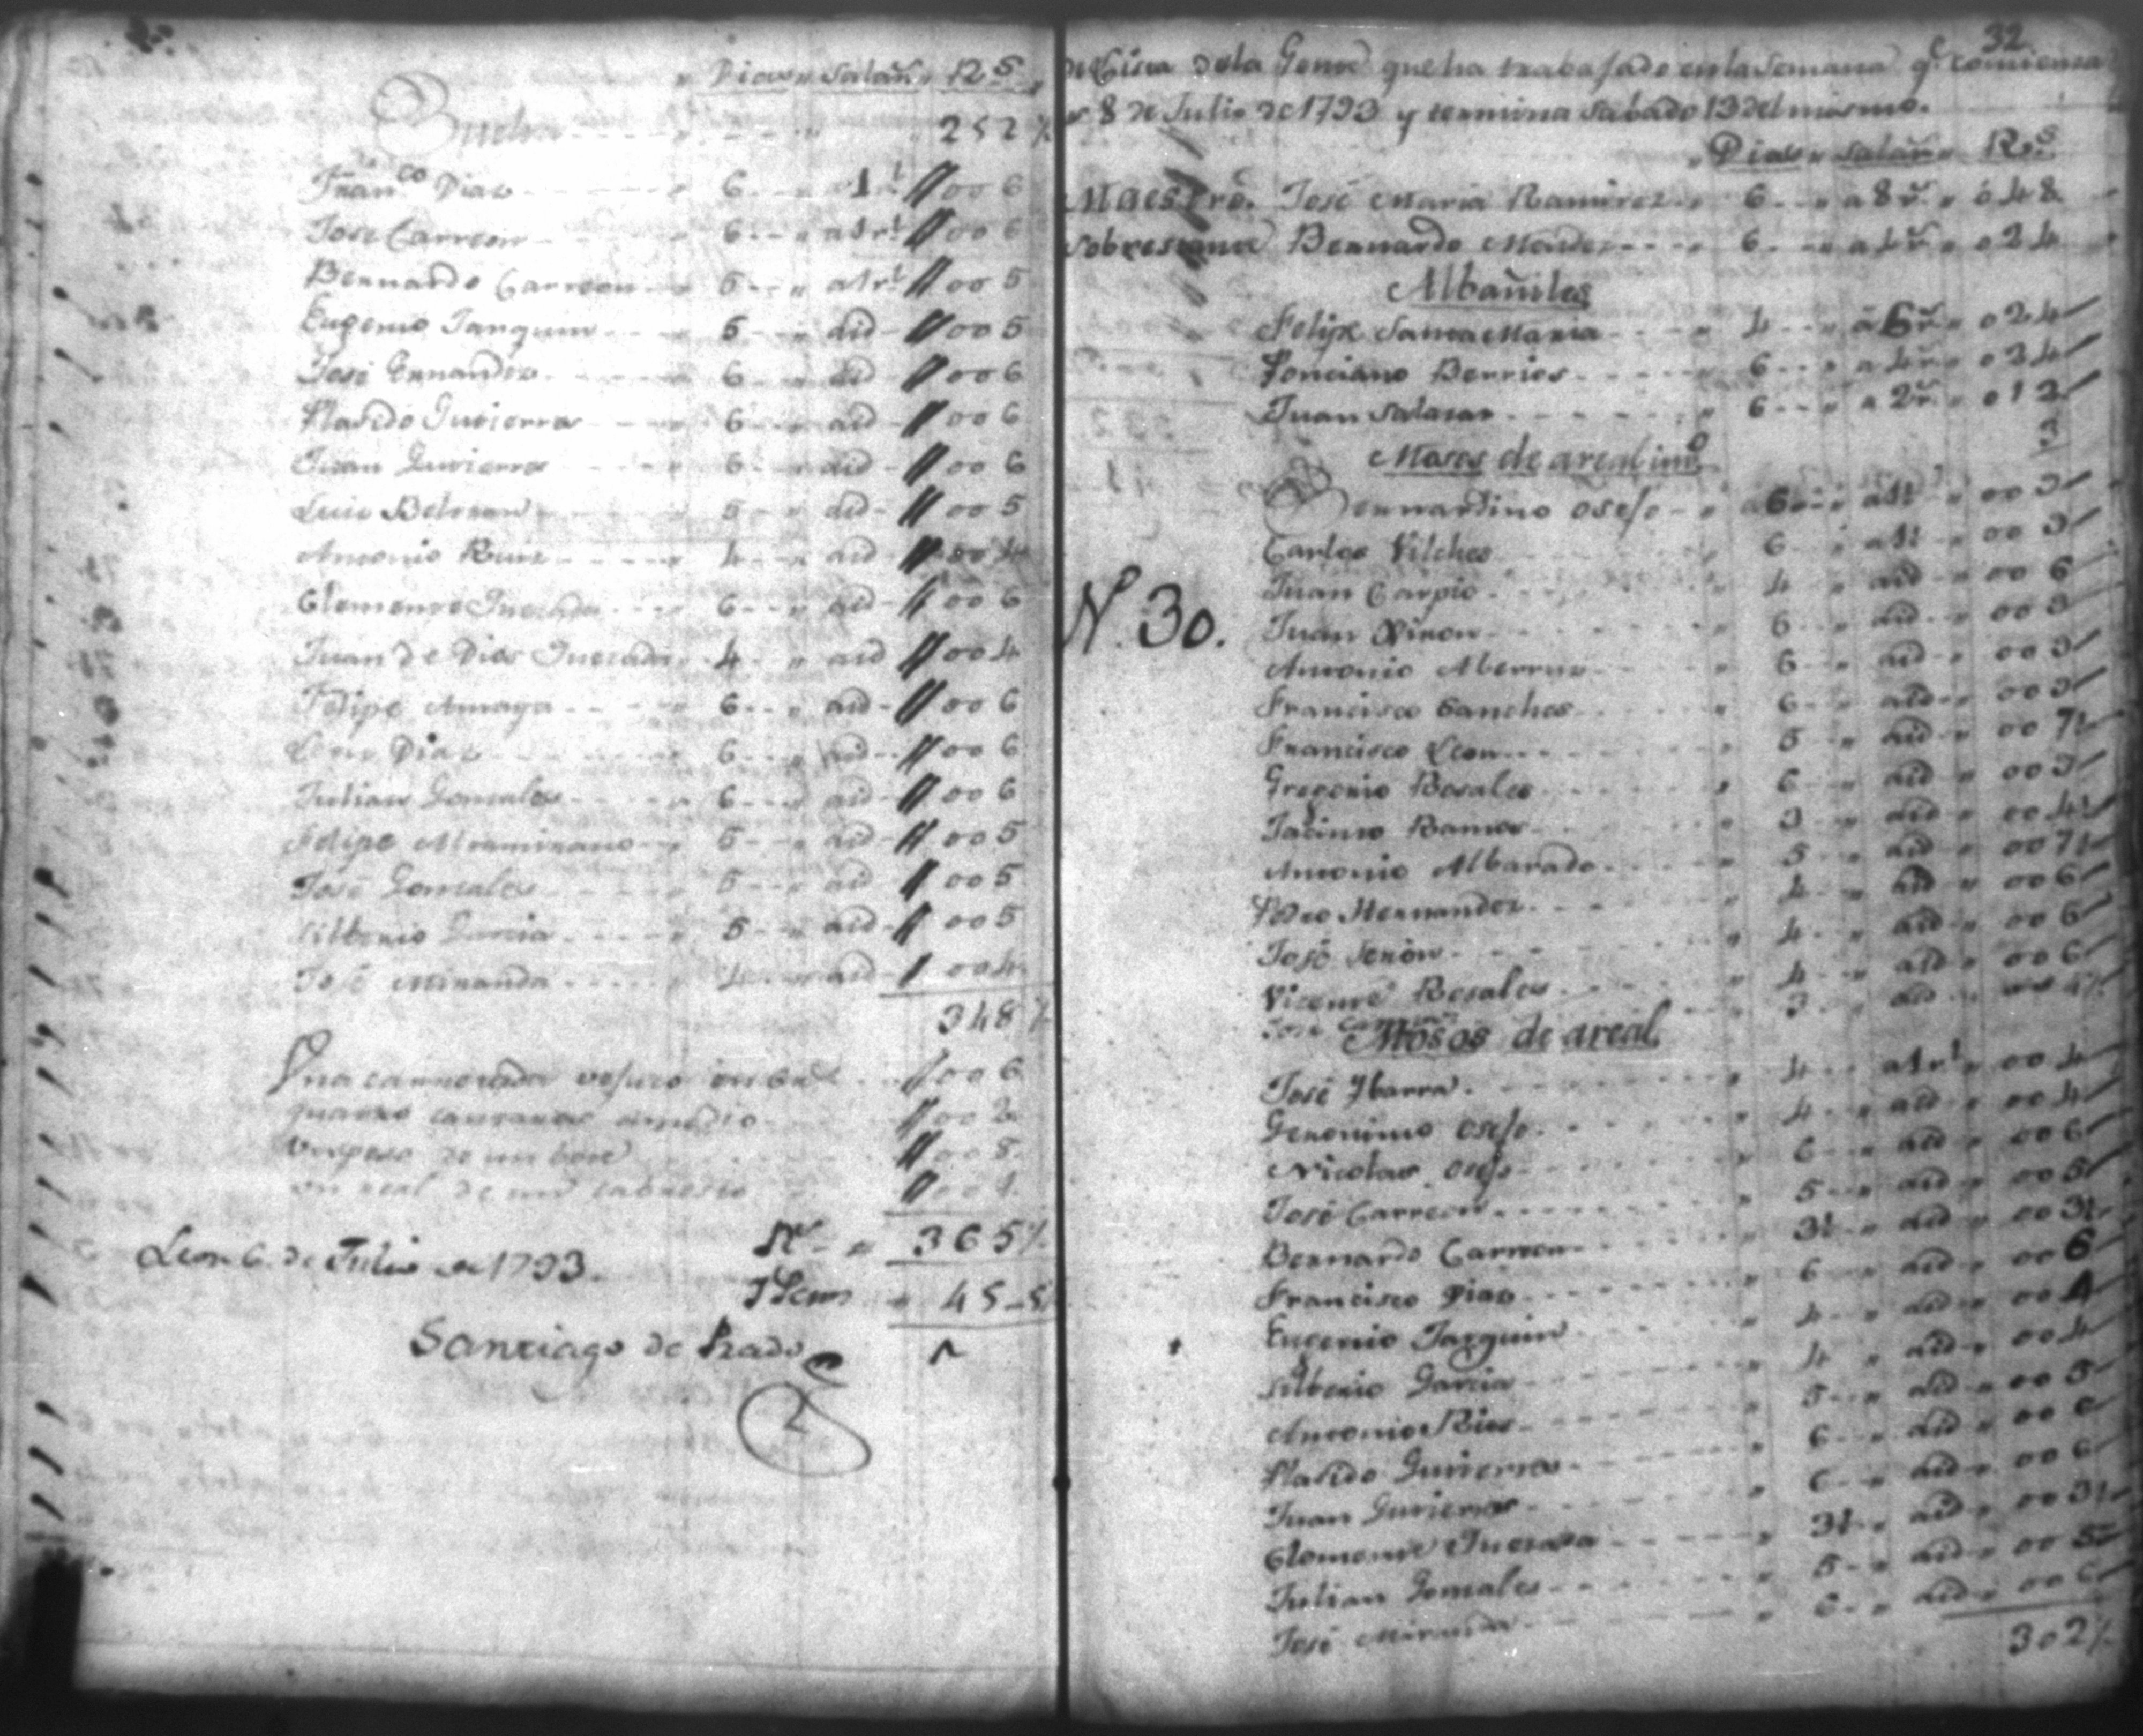 Dias Salar. R.s
Buelta 252 ½
Fran.co Dias 6 1 r.l 006
Jose Carreon 6 a1r.l 006
Bernardo Carreon 5 a1r.l 005
Eugenio Tarquin 5 aid 005
José Ernandes 6 aid 006
Plasido Gutierres 6 aid 006
Juan Gutierres 6 aid 006
Luis Beltran 5 aid 005
Antonio Ruis 4 aid 004
Clemente Quesada 6 aid 006
Juan de Dios Quesada 4 aid 004
Felipe Amaya 6 aid 006
Dias 6 aid 006
Julian Gonsales 6 aid 006
Felipe 5 aid 005
José Gonsales 5 aid 005
Silberio Garcia 5 aid 005
José Miranda 4 aid 004
348 ½
Una carretada 006
quatro 002
un peso de un 008
un real de un cabresto 001
365 ½
Leon 6 de Julio de 1793.
45-5
Santiago de Prado
32
Lista de la Gente que ha trabajado en la semana q.e comienza
8 de Julio de 1793 y termina Sabado 13 del mismo.
Dias Salar. R.s
Maestro. José Maria Ramires 6 a 8 r. 048
Sobrestante Bernardo Mendes 6 a 4 r. 024
Albañiles
Felipe Santa Maria 4 a 6 r. 024
Ponciano Berrios 6 a 4 r. 024
Juan Salasar 6 a 2 r. 012
Mosos de a real i m.o
Bernardino Osejo 6 009
Carlos Vilches 6 009
N. 30.
Juan Carpio 4 aid 006
Juan 6 aid 009
Antonio 6 aid 009
Francisco Sanches 6 aid 009
Francisco Leon 5 aid 007½
Gregorio Rosales 6 aid 009
Jacinto Ramos 3 aid 004½
Antonio Albarado 5 aid 007½
Pedro Hernandez 4 aid 006
José Seron 4 aid 006
Vicente Rosales 4 aid 006
José 3 aid 004½
Mosos de a real
José Ybarra 4 a1r.l 004
Geronimo Osejo 4 aid 004
Nicolas Osejo 6 aid 006
José Carreon 5 aid 005
Bernardo Carreon 3½ aid 003½
Francisco Dias 6 aid 006
Eugenio Tarquin 4 aid 004
Silberio Garcia 4 aid 004
Antonio Ruis 5 aid 005
Plasido Gutierres 6 aid 006
Juan Gutierres 6 aid 006
Clemente Quesada 3½ aid 003½
Julian Gonsales 5 aid 005
José Miranda 6 aid 006
302 ½